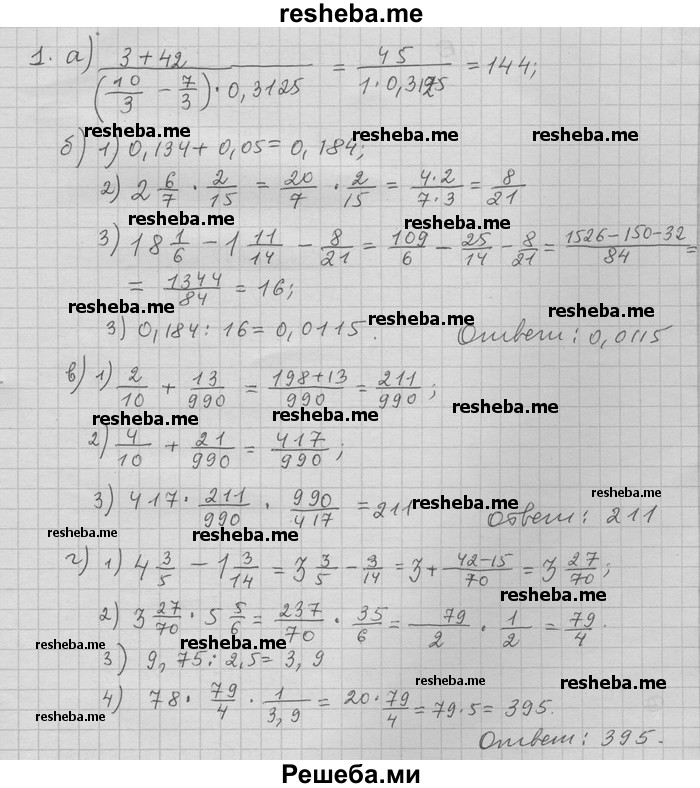 resheba.me
1. а) (3 + 42) / ((10/3 − 7/3) · 0,3125) = 45 / (1 · 0,3125) = 144;
resheba.me resheba.me
б) 1) 0,134 + 0,05 = 0,184;
2) 2 6/7 · 2/15 = 20/7 · 2/15 = (4·2)/(7·3) = 8/21
resheba.me resheba.me
3) 18 1/6 − 1 11/14 − 8/21 = 109/6 − 25/14 − 8/21 = (1526−150−32)/84 =
= 1344/84 = 16;
resheba.me resheba.me
3) 0,184 : 16 = 0,0115. Ответ: 0,0115
в) 1) 2/10 + 13/990 = (198+13)/990 = 211/990;
resheba.me resheba.me
2) 4/10 + 21/990 = 417/990;
3) 417 · 211/990 · 990/417 = 211
resheba.me resheba.me
Ответ: 211
resheba.me resheba.me
г) 1) 4 3/5 − 1 3/14 = 3 3/5 − 3/14 = 3 + (42−15)/70 = 3 27/70;
resheba.me
2) 3 27/70 · 5 5/6 = 237/70 · 35/6 = 79/2 · 1/2 = 79/4.
resheba.me resheba.me
3) 9,75 : 2,5 = 3,9
resheba.me resheba.me
4) 78 · 79/4 · 1/3,9 = 20 · 79/4 = 79 · 5 = 395.
resheba.me resheba.me
Ответ: 395.
Решеба.ми